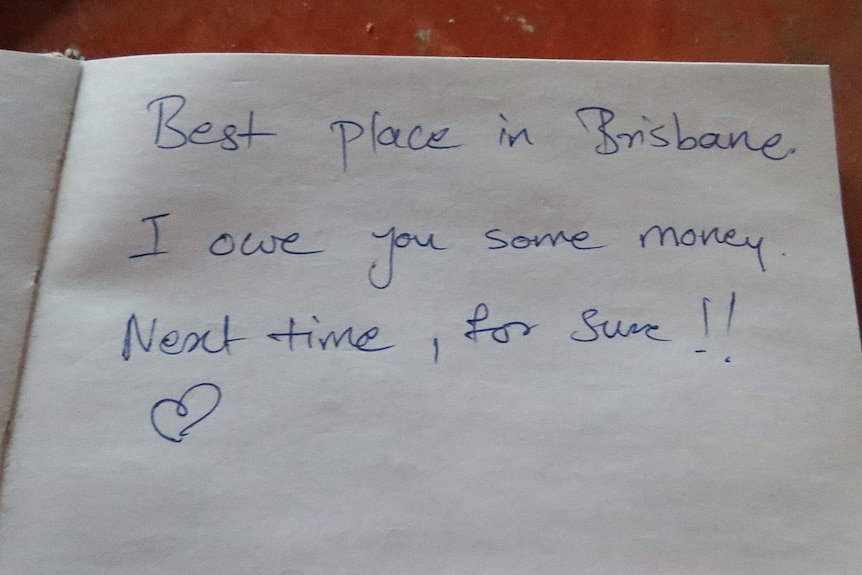 Best place in Brisbane.
I owe you some money.
Next time, for sure !!
♡